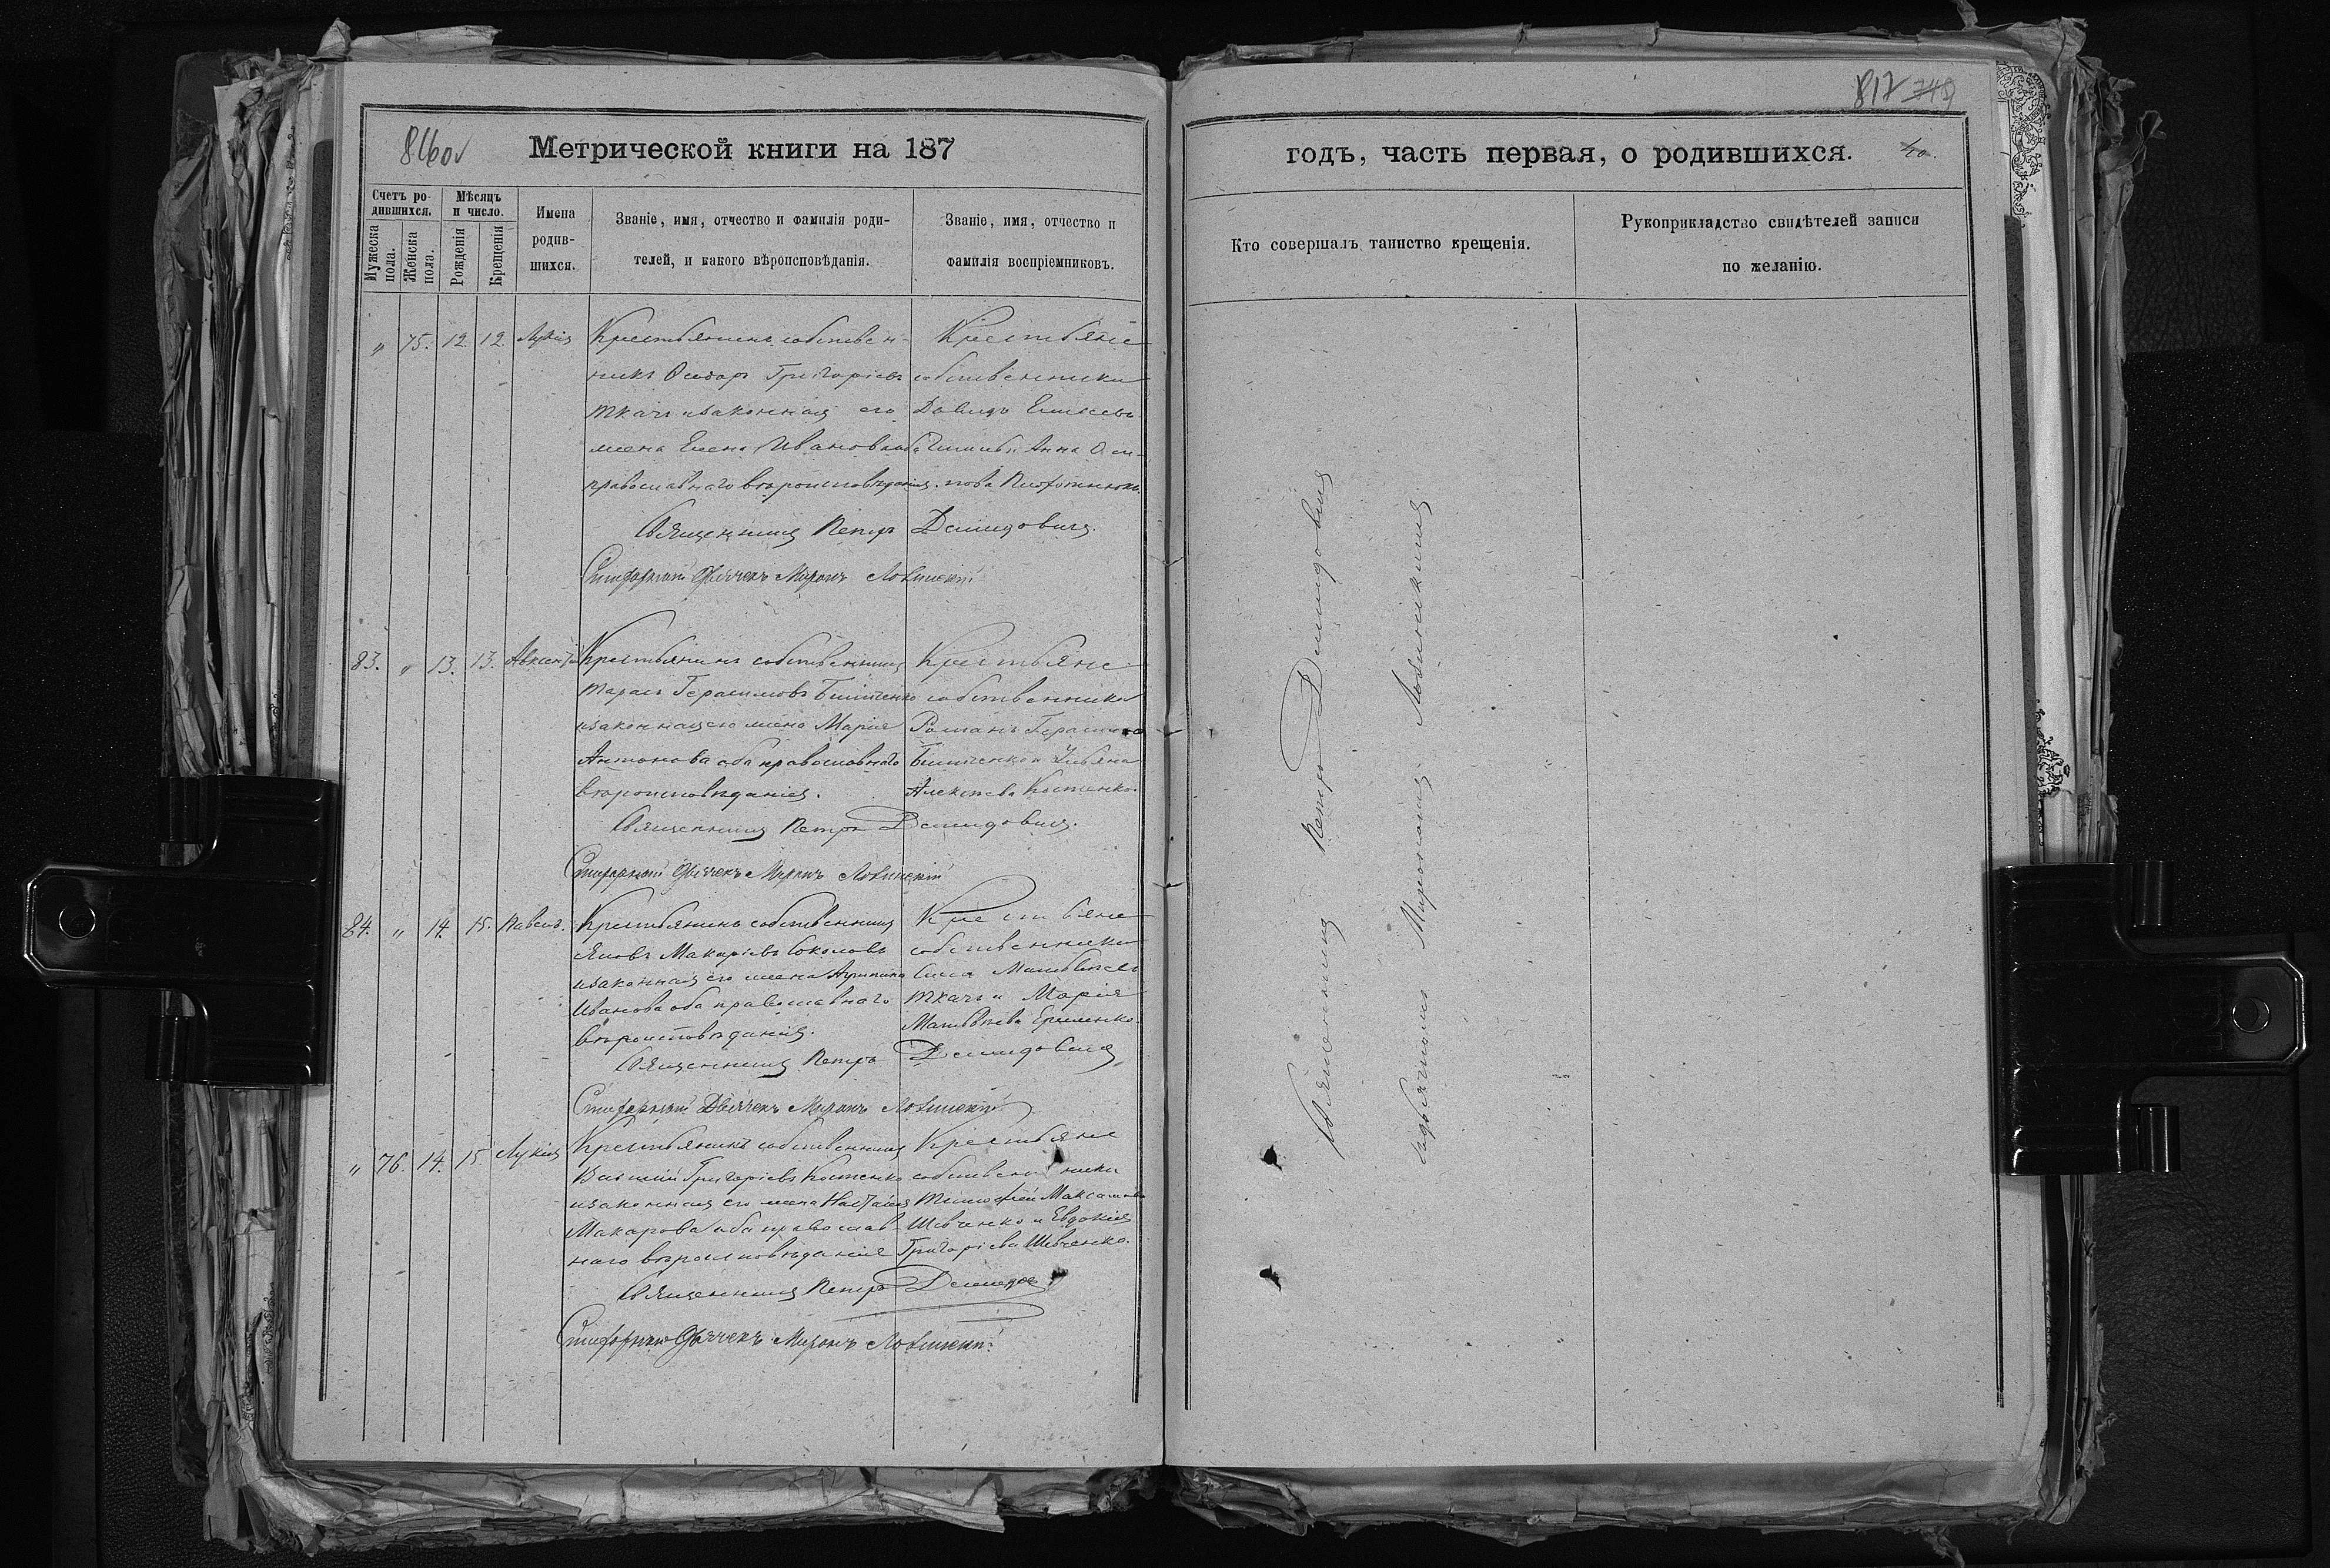 816об
Метрической книги на 187
Счетъ родившихся.
Мужеска пола.
Женска пола.
Мѣсяцъ и число.
Рожденія
Крещенія
Имена родившихся.
Званіе, имя, отчество и фамилія роди-
телей, и какого вѣроисповѣданія.
Званіе, имя, отчество и
фамилія воспріемниковъ.
" 75. 12. 12. Лукія
Крестьянинъ собствен-
никъ Ѳеодоръ Григоріевъ
Ткачъ изаконная его
жена Елена Иванова оба
православнаго вѣроисповѣданія.
Крестьяне
собственники
Давидъ
и Анна Оси-
пова
Священникъ Петръ Демидовичъ.
Стихарный Дьячекъ Миронъ Ловинскій
83. " 13. 13. Авксентій
Крестьянинъ собственникъ
Тарасъ Герасимовъ
изаконная его жена Марія
Антонова оба православнаго
вѣроисповѣданія.
Крестьяне
собственники
Романъ Герасимовъ
и Ульяна
Алексѣева Костенкова
Священникъ Петръ Демидовичъ.
Стихарный Дьячекъ Миронъ Ловинскій
84. " 14. 15. Павелъ.
Крестьянинъ собственникъ
Яковъ Макаріевъ Соколовъ
изаконная его жена Агрипина
Иванова оба православнаго
вѣроисповѣданія.
Крестьяне
собственники
Сила Матвѣевъ
Ткачъ и Марія
Матвѣева Ерименко.
Священникъ Петръ Демидовичъ
Стихарный Дьячекъ Миронъ Ловинскій
" 76. 14. 15. Лукія
Крестьянинъ собственникъ
Василій Григоріевъ Костенко
изаконная его жена Настасія
Макарова оба православ-
наго вѣроисповѣданія
Крестьяне
собственники
Тимофей Максимовъ
Шевченко и Евдокія
Григоріева Шевченко.
Священникъ Петръ Демидов
Стихарный Дьячекъ Миронъ Ловинскій
817 748
годъ, часть первая, о родившихся. 40.
Кто совершалъ таинство крещенія.
Рукоприкладство свидѣтелей записи
по желанію.
Священникъ Петръ Демидовичъ
Миронъ Ловинскій